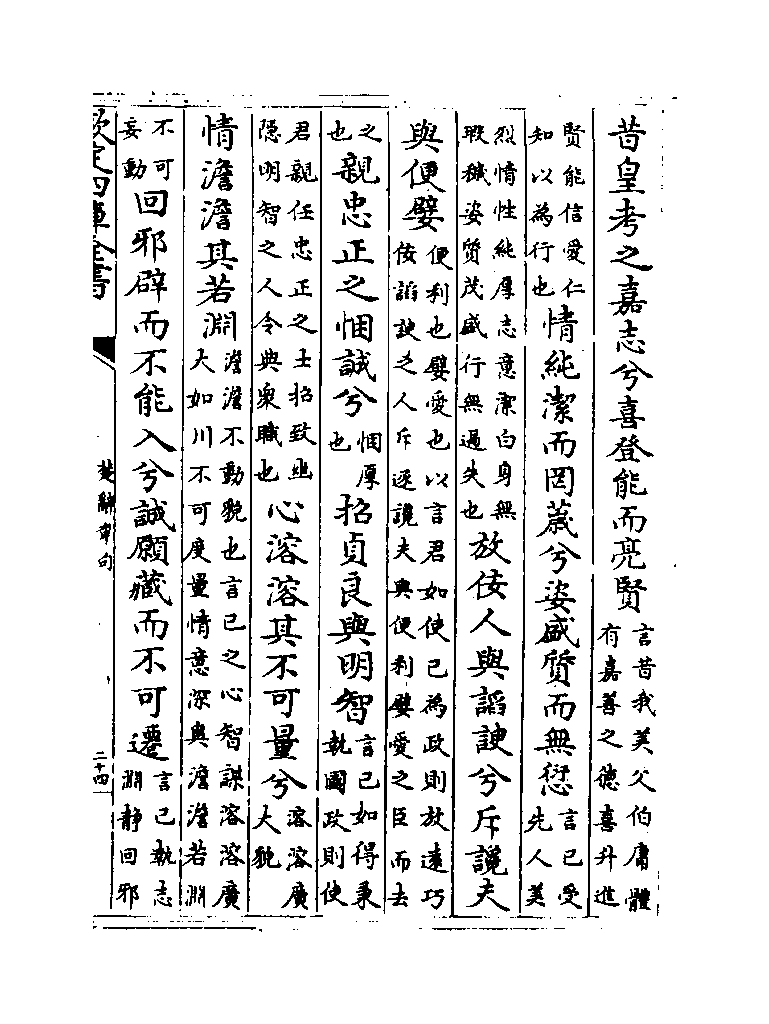 昔皇考之嘉志兮喜登能而亮賢言昔我美父伯庸體有嘉善之德喜升進
賢能信愛仁知以為行也情純潔而罔薉兮姿盛質而無愆言已受先人美
烈情性純厚志意潔白身無瑕穢姿質茂盛行無過失也放佞人與諂諛兮斥讒夫
與便嬖便利也嬖愛也以言君如使已為政則放遠巧佞諂諛之人斥逐讒夫與便利嬖愛之臣而去
之也親忠正之悃誠兮悃厚也招貞良與明智言已如得秉執國政則使
君親任忠正之士招致幽隱明智之人令典衆職也心溶溶其不可量兮溶溶廣大貌
情澹澹其若淵澹澹不動貌也言已之心智謀溶溶廣大如川不可度量情意深奧澹澹若淵
不可妄動回邪辟而不能入兮誠願藏而不可遷言已執志淵靜回邪
欽定四庫全書
楚辭章句
二十四